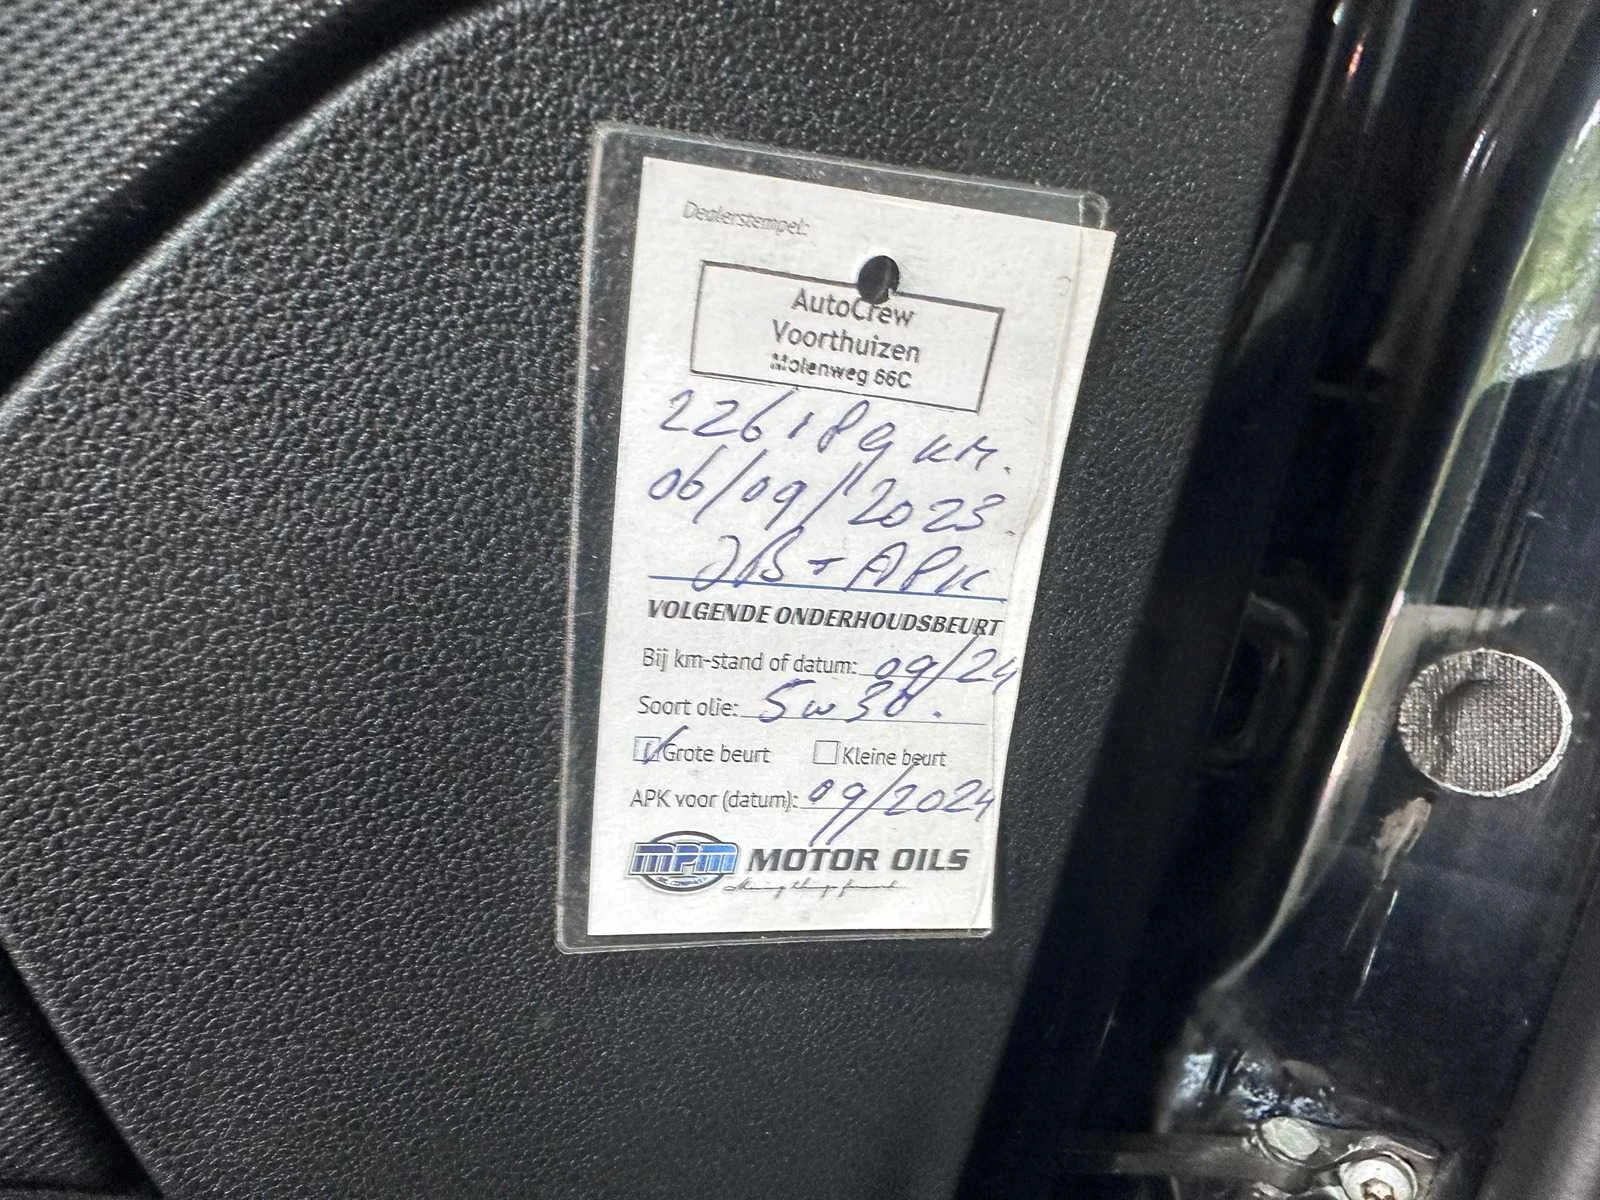 Dealerstempel:
AutoCrew
Voorthuizen
Molenweg 66C
226189 KM.
06/09/2023.
JB + APK
VOLGENDE ONDERHOUDSBEURT
Bij km-stand of datum: 09/24
Soort olie: 5w30.
Grote beurt Kleine beurt
APK voor (datum): 09/2024
MPM MOTOR OILS